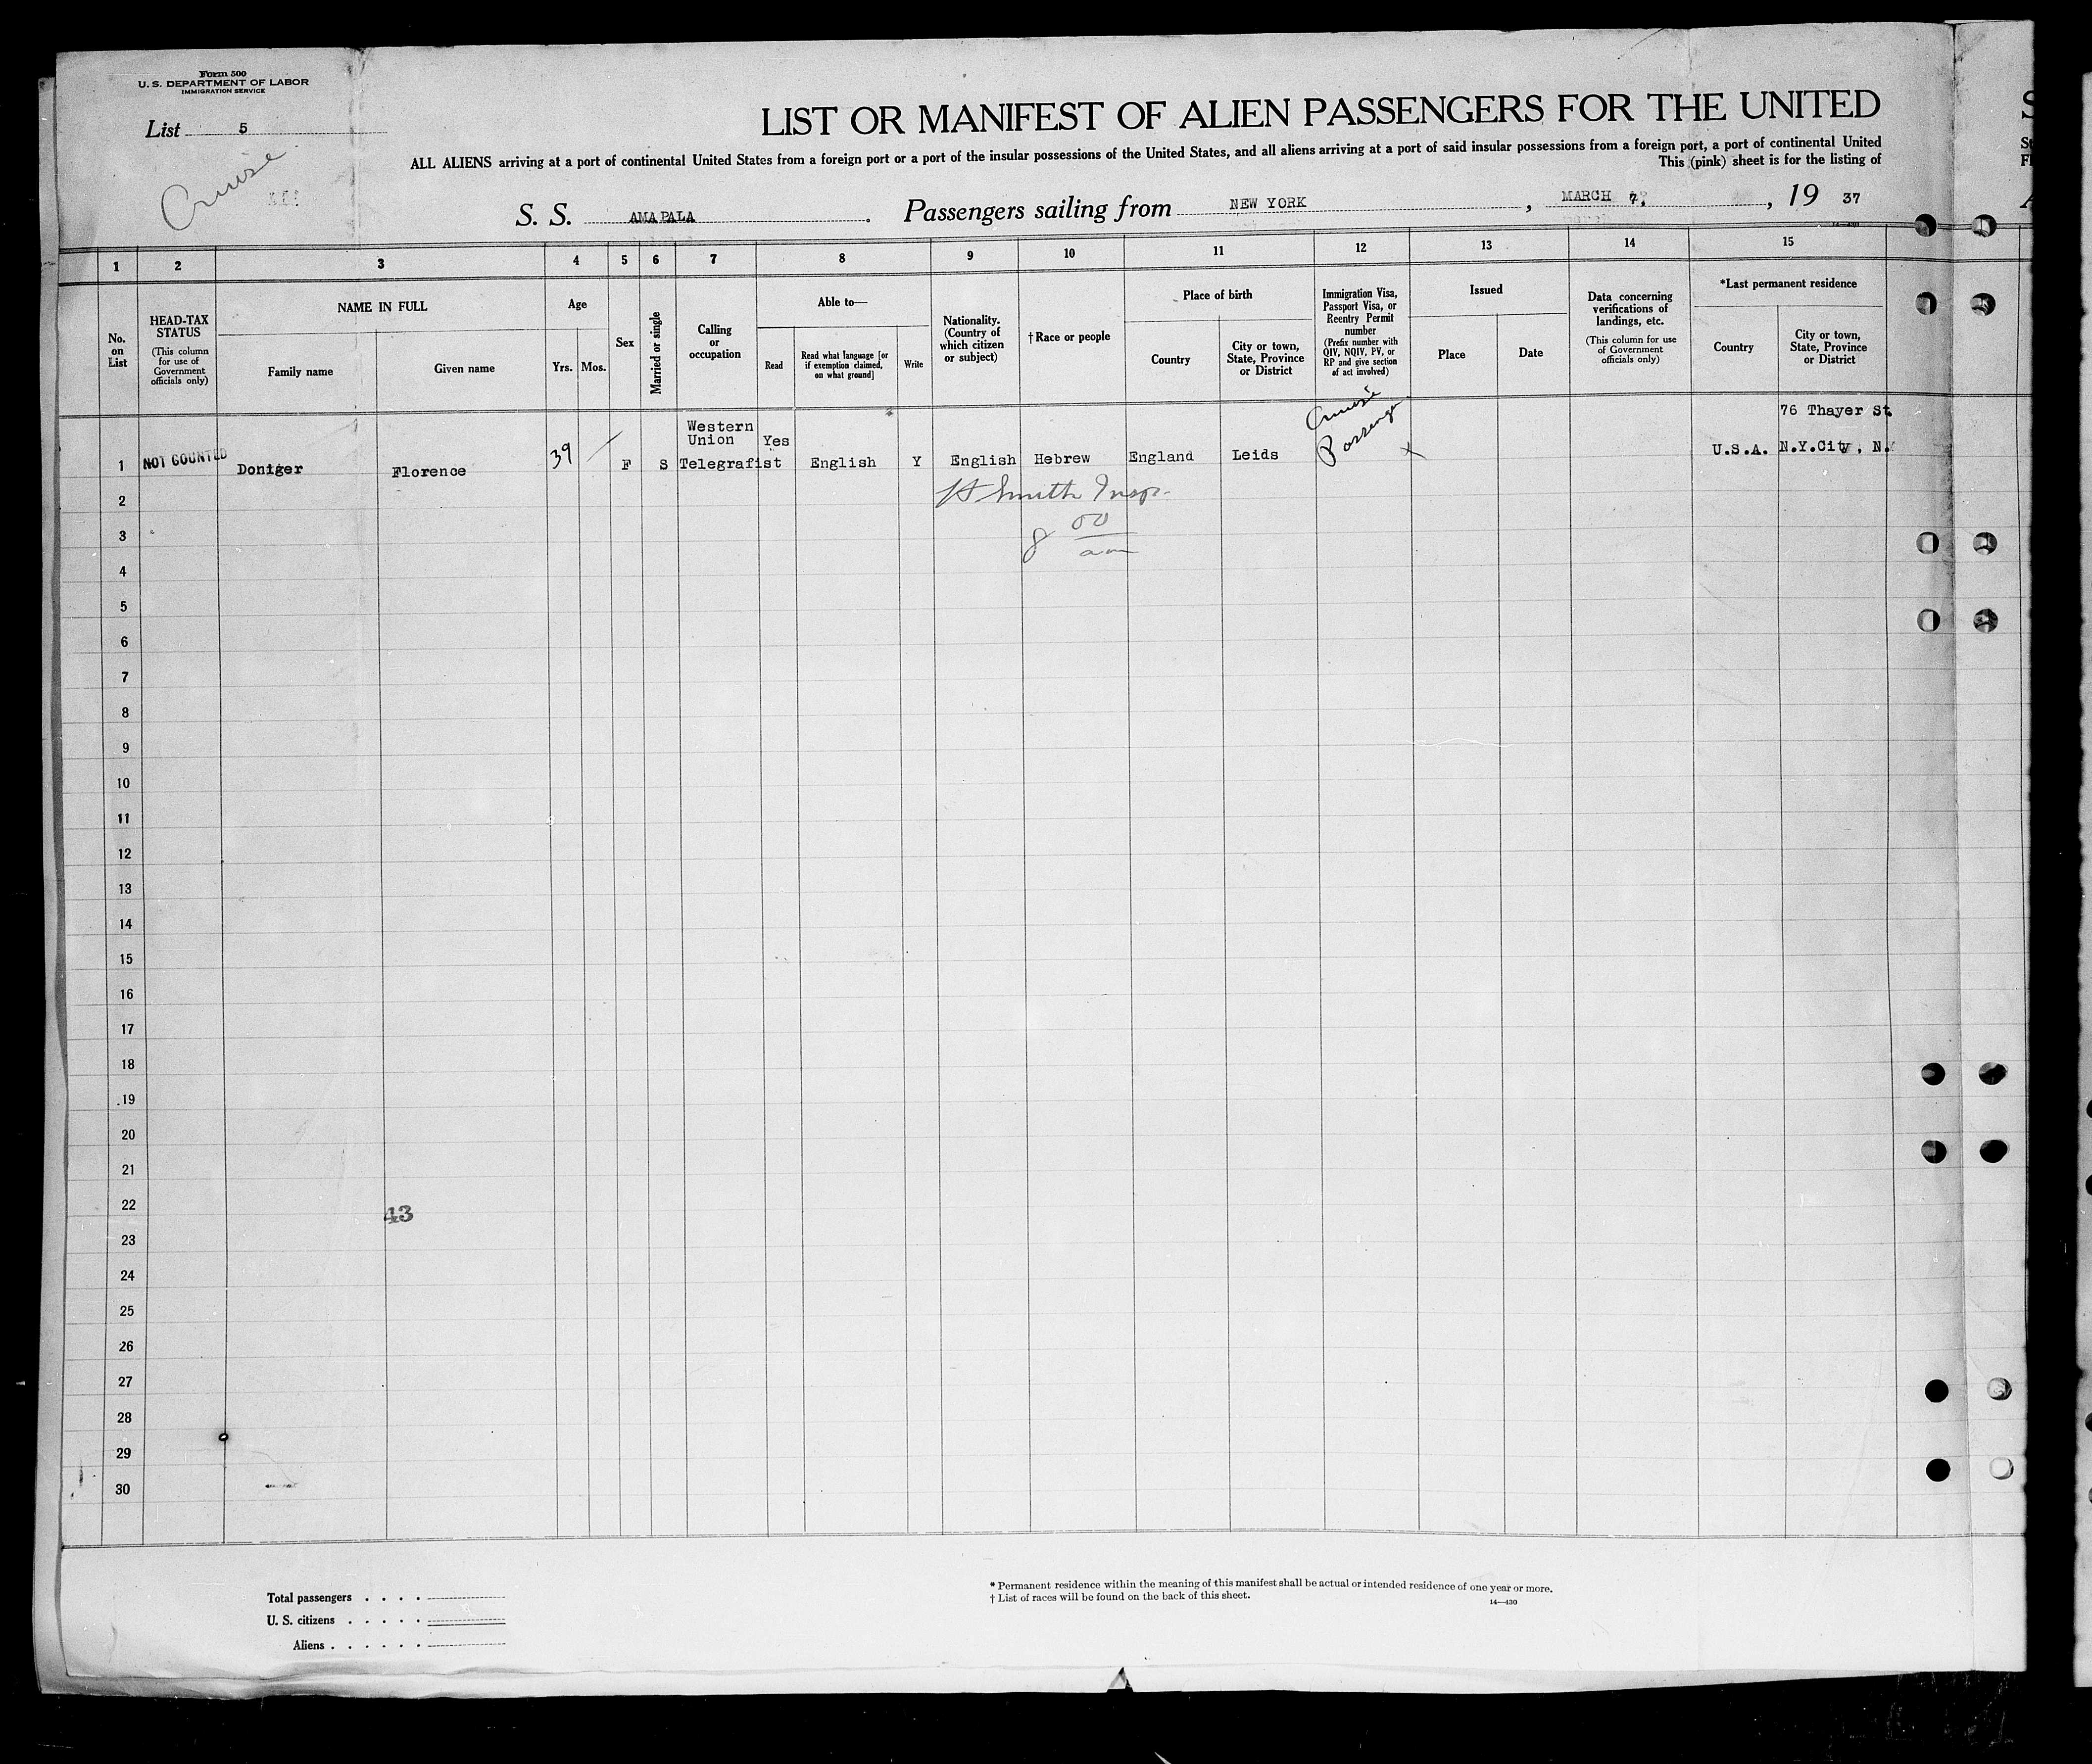 Form 500
U. S. DEPARTMENT OF LABOR
IMMIGRATION SERVICE
List 5
Cruise
LIST OR MANIFEST OF ALIEN PASSENGERS FOR THE UNITED
ALL ALIENS arriving at a port of continental United States from a foreign port or a port of the insular possessions of the United States, and all aliens arriving at a port of said insular possessions from a foreign port, a port of continental United
This (pink) sheet is for the listing of
S. S. AMAPALA. Passengers sailing from NEW YORK, MARCH 7, 19 37
1 2 3 4 5 6 7 8 9 10 11 12 13 14 15
No. on List
HEAD-TAX STATUS
(This column for use of Government officials only)
NAME IN FULL
Family name
Given name
Age
Yrs. Mos.
Sex
Married or single
Calling or occupation
Able to—
Read
Read what language [or if exemption claimed, on what ground]
Write
Nationality. (Country of which citizen or subject)
†Race or people
Place of birth
Country
City or town, State, Province or District
Immigration Visa, Passport Visa, or Reentry Permit number
(Prefix number with QIV, NQIV, PV, or RP and give section of act involved)
Issued
Place
Date
Data concerning verifications of landings, etc.
(This column for use of Government officials only)
*Last permanent residence
Country
City or town, State, Province or District
1 NOT COUNTED Doniger Florence 39 F S Western Union Telegrafist Yes English Y English Hebrew England Leids Cruise Passenger x U.S.A. 76 Thayer St. N.Y.City, N.Y
2 Smith Insp.
3 8 00 am
4
5
6
7
8
9
10
11
12
13
14
15
16
17
18
19
20
21
22
43
23
24
25
26
27
28
29
30
Total passengers . . . .
U. S. citizens . . . . .
Aliens . . . . . .
* Permanent residence within the meaning of this manifest shall be actual or intended residence of one year or more.
† List of races will be found on the back of this sheet.
14—430